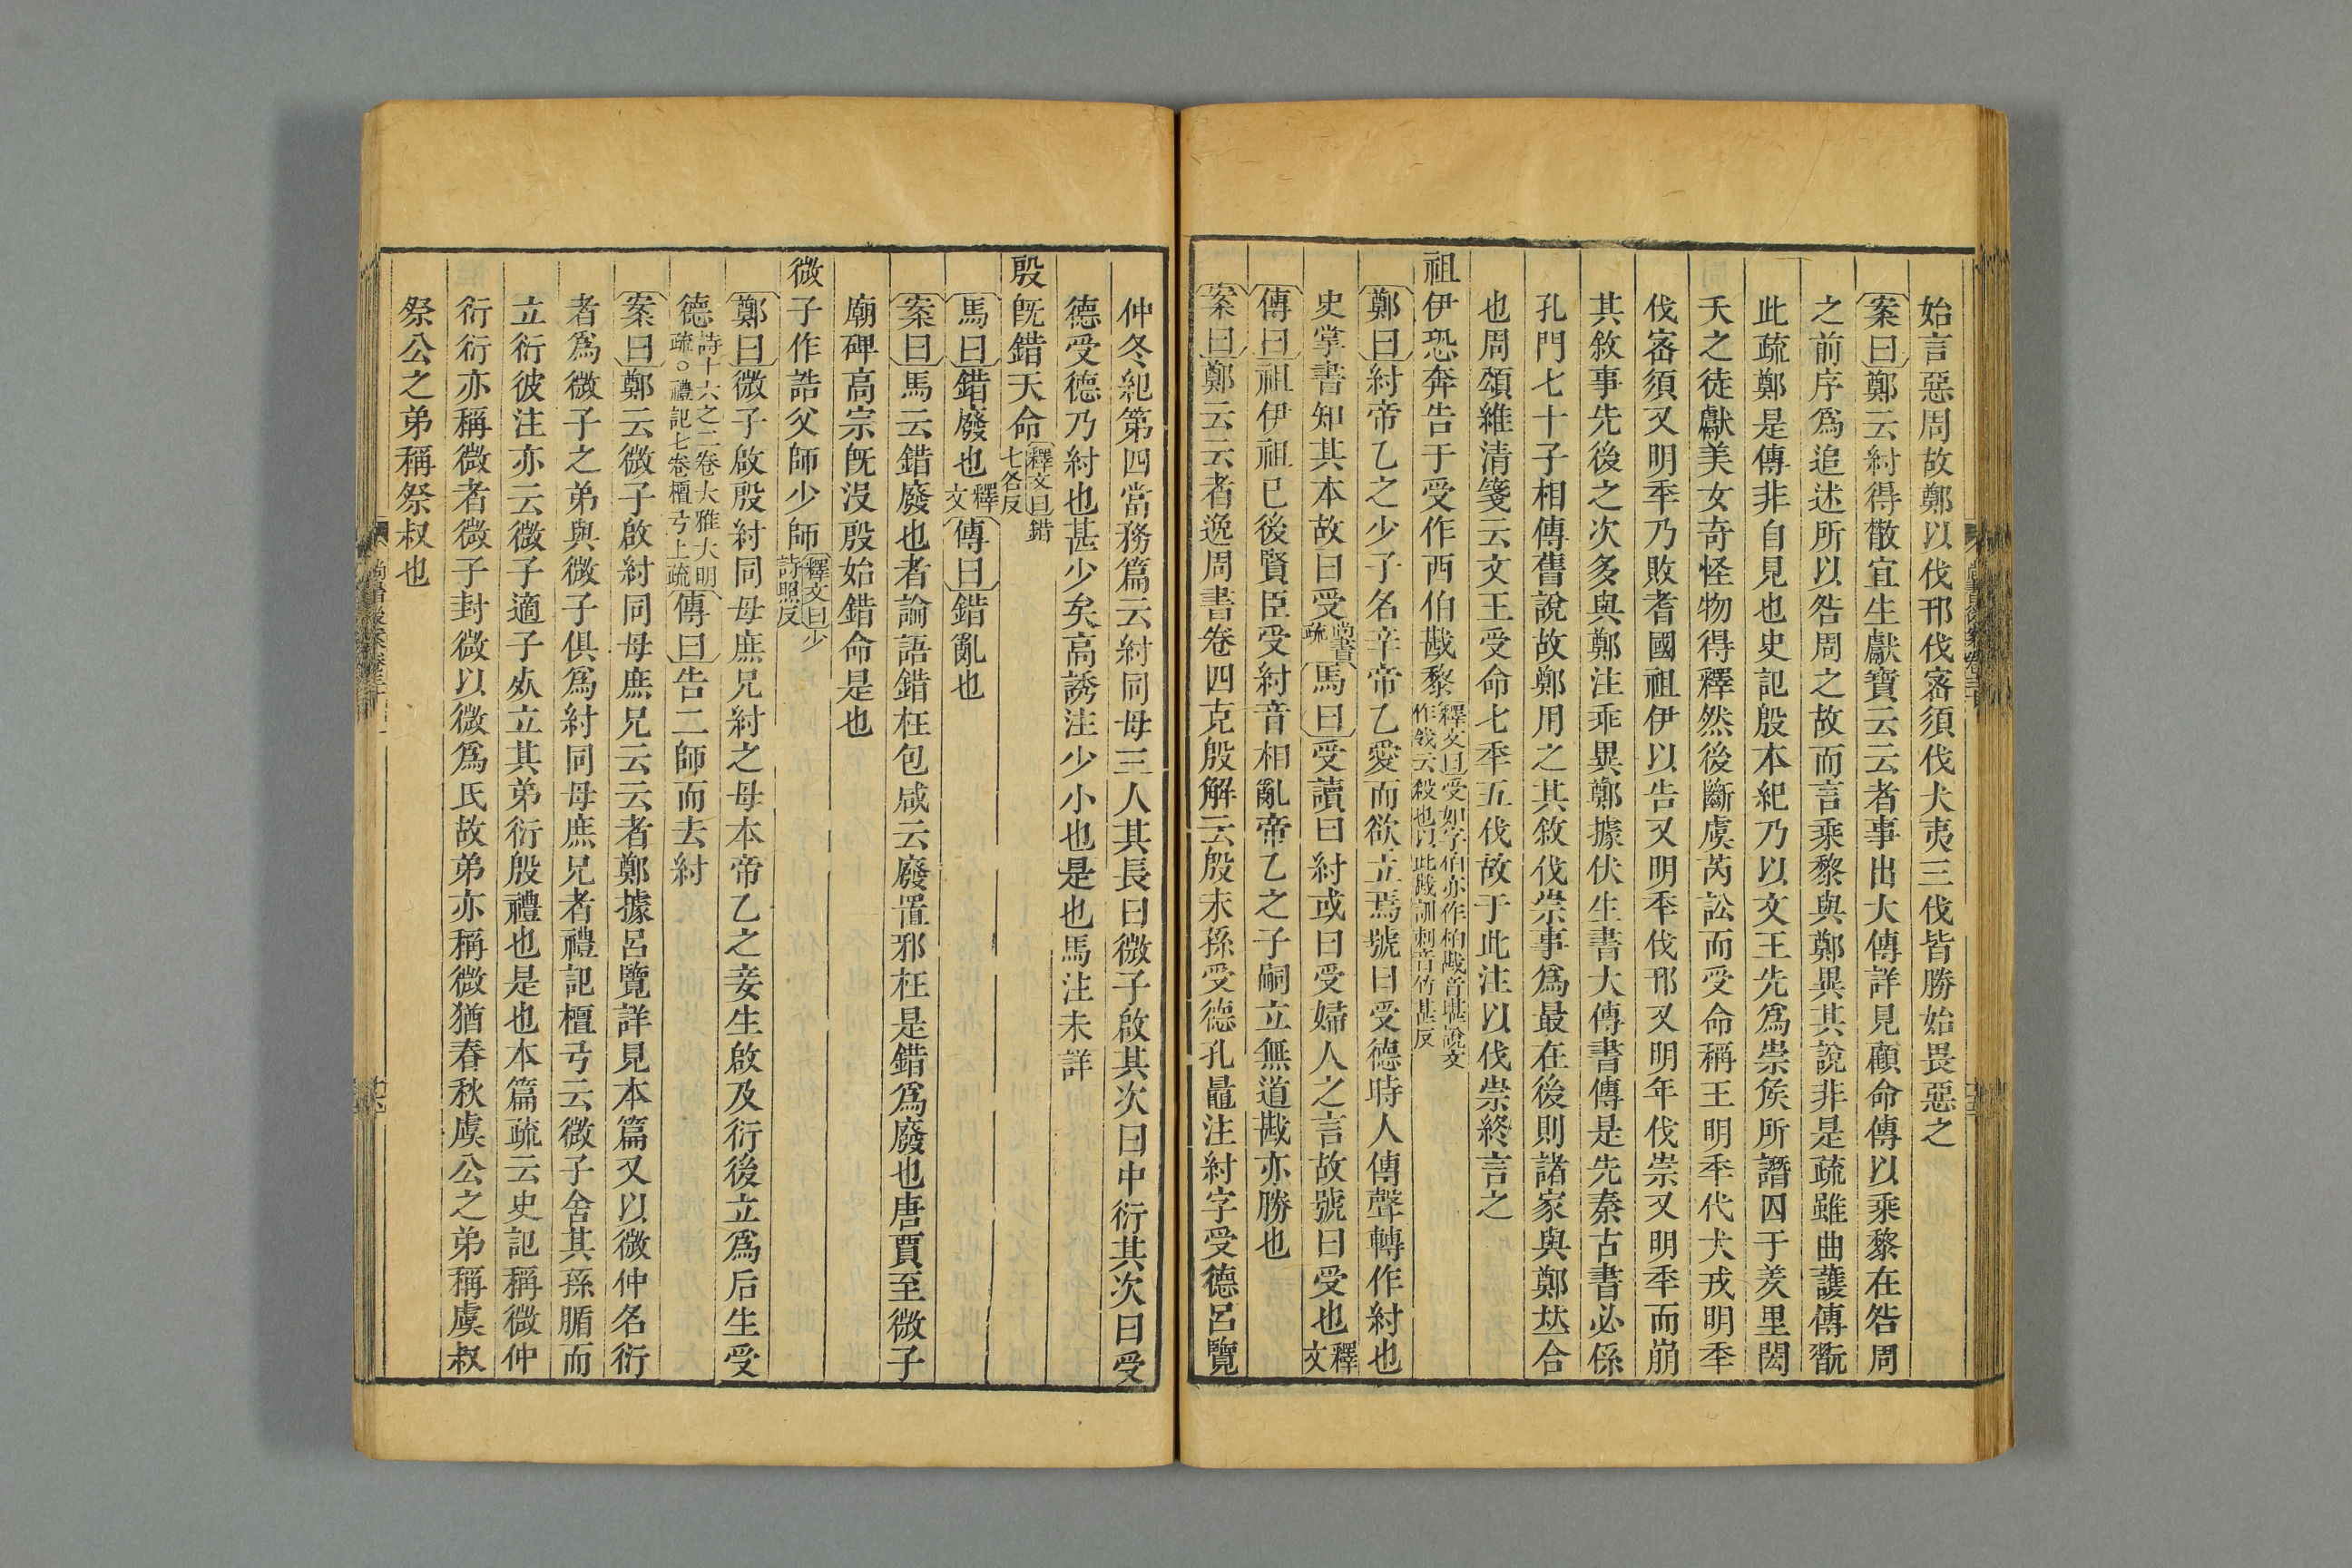 始言惡周故鄭以伐邘伐密須伐犬夷三伐皆勝始畏惡之
案曰鄭云紂得散宜生獻寶云云者事出大傳詳見顧命傳以乘黎在咎周
之前序爲追述所以咎周之故而言乘黎與鄭異其說非是疏雖曲護傳翫
此疏鄭是傳非自見也史記殷本紀乃以文王先爲崇矦所譖囚于羑里閎
夭之徒獻美女奇怪物得釋然後斷虞芮訟而受命稱王明秊伐犬戎明秊
伐密須又明秊乃敗耆國祖伊以告又明秊伐邘又明年伐崇又明秊而崩
其敘事先後之次多與鄭注乖異鄭據伏生書大傳書傳是先秦古書必係
孔門七十子相傳舊說故鄭用之其敘伐崇事爲最在後則諸家與鄭竝合
也周頌維清箋云文王受命七秊五伐故于此注以伐崇終言之
祖伊恐奔告于受作西伯戡黎釋文曰受如字伯亦作柏戡音堪說文
作𢦟云殺也以此戡訓刺音竹甚反
鄭曰紂帝乙之少子名辛帝乙愛而欲立焉號曰受德時人傳聲轉作紂也
史掌書知其本故曰受尚書疏馬曰受讀曰紂或曰受婦人之言故號曰受也釋文
傳曰祖伊祖已後賢臣受紂音相亂帝乙之子嗣立無道戡亦勝也
案曰鄭云云者逸周書卷四克殷解云殷末孫受德孔鼂注紂字受德呂覽
仲冬紀第四當務篇云紂同母三人其長曰微子啟其次曰中衍其次曰受
德受德乃紂也甚少矣高誘注少小也是也馬注未詳
殷旣錯天命釋文曰錯
七各反
馬曰錯廢也釋文傳曰錯亂也
案曰馬云錯廢也者論語錯枉包咸云廢置邪枉是錯爲廢也唐賈至微子
廟碑高宗旣沒殷始錯命是也
微子作誥父師少師釋文曰少
詩照反
鄭曰微子啟殷紂同母庶兄紂之母本帝乙之妾生啟及衍後立爲后生受
德詩十六之二卷大雅大明
疏○禮記七卷檀弓上疏傳曰告二師而去紂
案曰鄭云微子啟紂同母庶兄云云者鄭據呂覽詳見本篇又以微仲名衍
者爲微子之弟與微子俱爲紂同母庶兄者禮記檀弓云微子舍其孫腯而
立衍彼注亦云微子適子𣦸立其弟衍殷禮也是也本篇疏云史記稱微仲
衍衍亦稱微者微子封微以微爲氏故弟亦稱微猶春秋虞公之弟稱虞叔
祭公之弟稱祭叔也